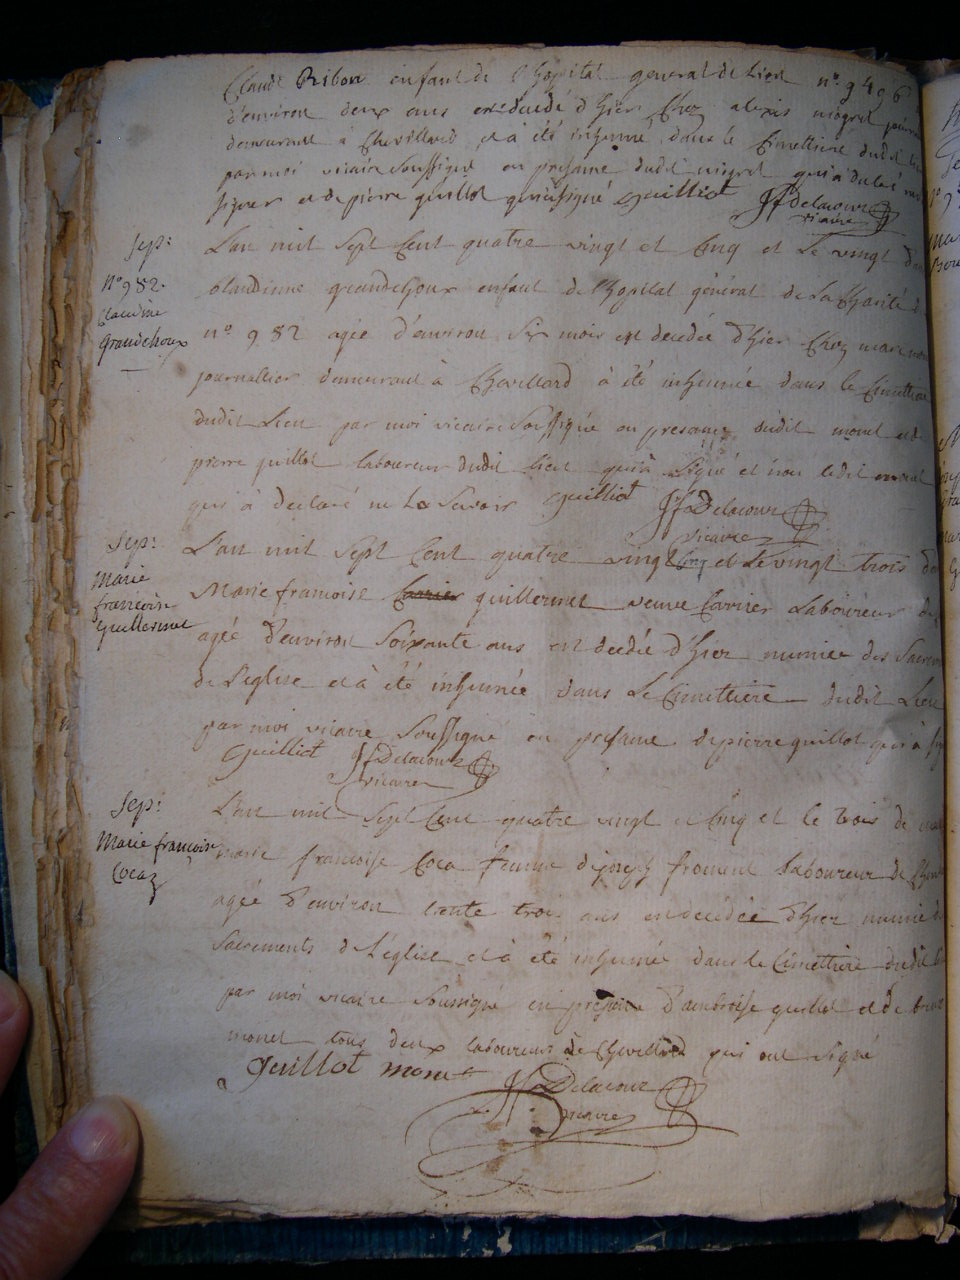 Claude Ribon enfant de l'hopital general de Lion n° 9496
d'environ deux ans est decedé d'hier chez alexis niogret journ
demeurant à Chevillard et a été inhumé dans le Cimettiere dudit lieu
par moi vicaire soussigné en presance dudit niogret qui a declaré
signer et de pierre guillot qui a signé guilliot JfDelacour
vicaire
Sep: L'an mil Sept Cent quatre vingt et Cinq et Le vingt
n° 982. Claudinne grandchoux enfant de l'hopital général de La Charité
Claudine
Grandchoux n° 982 agée d'environ Six mois est decedée d'hier Chez marc
journallier demeurant à Chevillard à été inhumée dans le Cimettiere
dudit Lieu par moi vicaire Soussigné en presance dudit monet et de
pierre guillot laboureur dudit Lieu qui à Signé et non ledit monet
qui à declaré ne Le Savoir guilliot JfDelacour
vicaire
Sep: L'an mil Sept Cent quatre vingt Cinq et Le vingt trois
Marie
francoise
Guillermet Marie francoise Carrier guillermet veuve Carrier Laboureur
agée d'environ Soixante ans est decedée d'hier munie des Sacrem
de L'eglise et à été inhumée dans Le Cimettiere dudit Lieu
par moi vicaire Soussigné en presance de pierre guillot qui à
Guilliot JfDelacour
vicaire
Sep: L'an mil Sept Cent quatre vingt et Cinq et le trois de
Marie françoise
Cocaz marie francoise Coca femme de joseph froment laboureur de
agée d'environ trente trois ans est decedée d'hier munie
Sacrements de L'eglise et à été inhumée dans le Cimettiere dudit
par moi vicaire Soussigné en presance d'ambroise guillot et de
monet tous deux laboureurs de Chevillard qui ont signé
guillot monet JfDelacour
vicaire